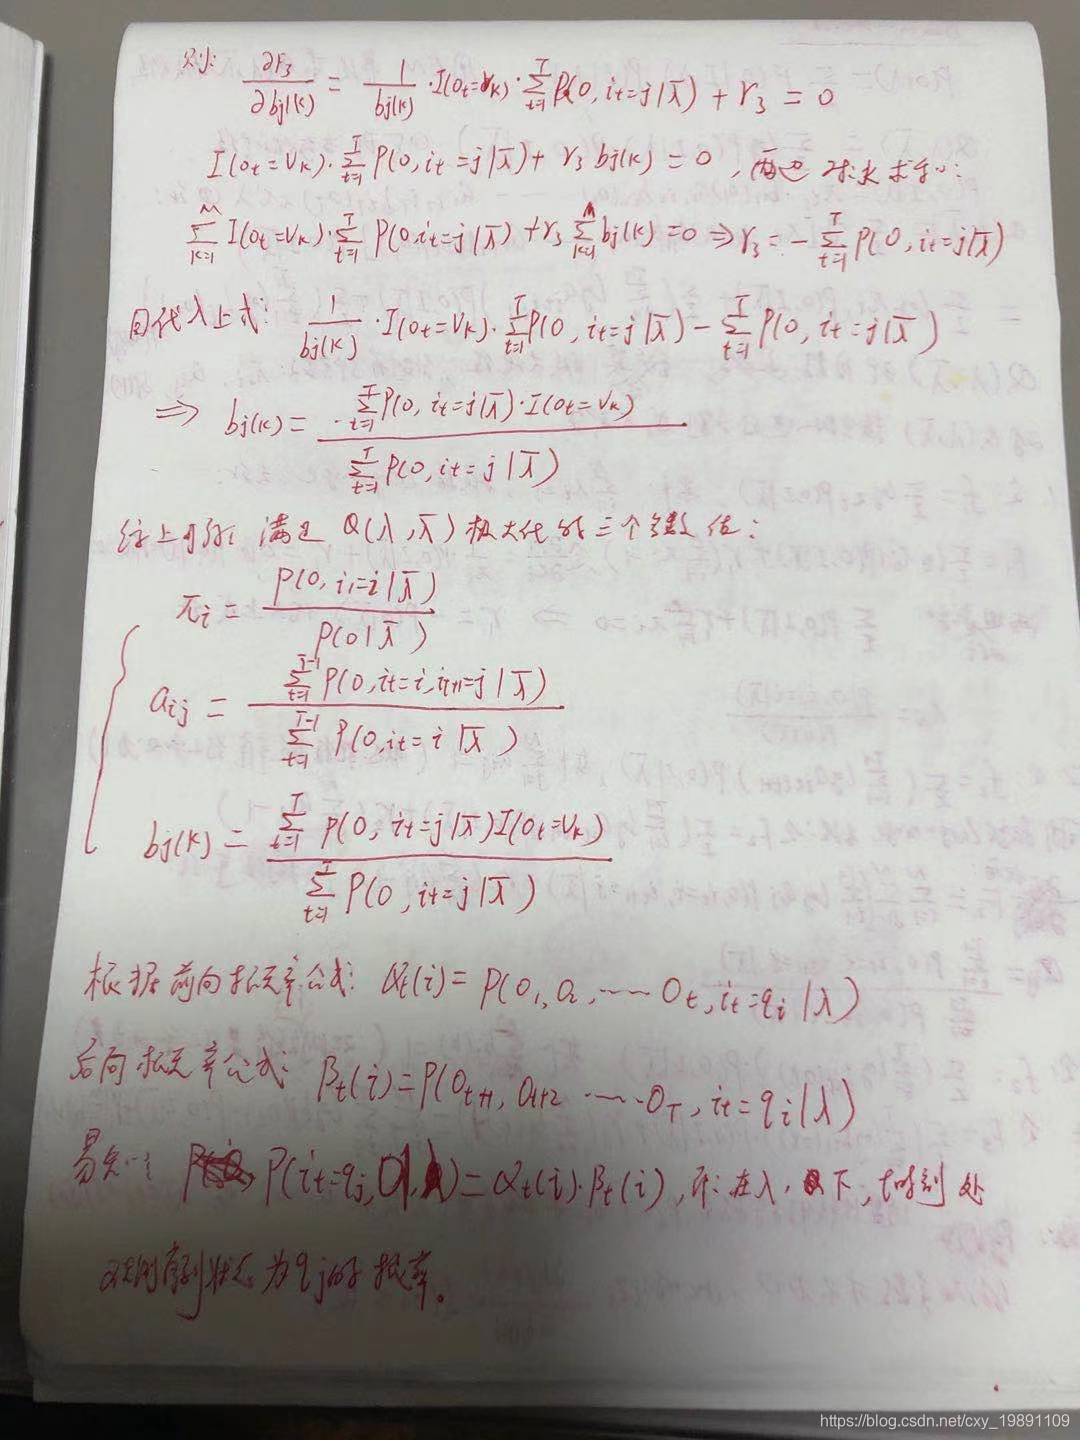 则: ∂F₃/∂bj(k) = 1/bj(k) · I(Ot=Vk) · Σ_{t=1}^{T} P(O, it=j|λ̄) + r₃ = 0
I(Ot=Vk) · Σ_{t=1}^{T} P(O, it=j|λ̄) + r₃ bj(k) = 0, 两边对k求和:
Σ_{k=1}^{M} I(Ot=Vk) · Σ_{t=1}^{T} P(O, it=j|λ̄) + r₃ Σ_{k=1}^{M} bj(k) = 0 ⇒ r₃ = - Σ_{t=1}^{T} P(O, it=j|λ̄)
回代入上式: 1/bj(k) · I(Ot=Vk) · Σ_{t=1}^{T} P(O, it=j|λ̄) - Σ_{t=1}^{T} P(O, it=j|λ̄)
⇒ bj(k) = Σ_{t=1}^{T} P(O, it=j|λ̄) · I(Ot=Vk) / Σ_{t=1}^{T} P(O, it=j|λ̄)
综上所述: 满足 Q(λ,λ̄) 极大化的三个参数值:
πi = P(O, i₁=i|λ̄) / P(O|λ̄)
aij = Σ_{t=1}^{T-1} P(O, it=i, it+1=j|λ̄) / Σ_{t=1}^{T-1} P(O, it=i|λ̄)
bj(k) = Σ_{t=1}^{T} P(O, it=j|λ̄) I(Ot=Vk) / Σ_{t=1}^{T} P(O, it=j|λ̄)
根据前向概率公式: αt(i) = P(O₁, O₂, …… Ot, it=qi|λ)
后向概率公式: βt(i) = P(Ot+1, Ot+2 …… OT, it=qi|λ)
易知: P(it=qj, O|λ) = αt(i)·βt(i), 即: 在λ, O下, t时刻处
观测序列状态为qj的概率。
https://blog.csdn.net/cxy_19891109